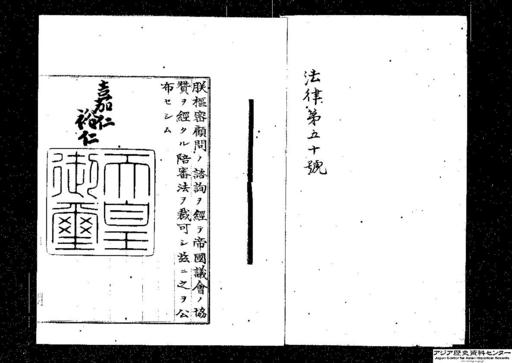 法律第五十號
朕樞密顧問ノ諮詢ヲ經テ帝國議會ノ協
贊ヲ經タル陪審法ヲ裁可シ茲ニ之ヲ公
布セシム
嘉仁
裕仁
天皇
御璽
アジア歴史資料センター
Japan Center for Asian Historical Records